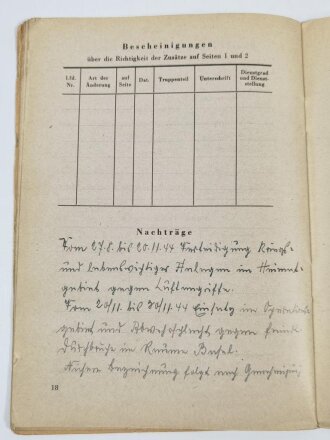 Bescheinigungen
über die Richtigkeit der Zusätze auf Seiten 1 und 2
Lfd. Nr.
Art der Änderung
auf Seite
Dat.
Truppenteil
Unterschrift
Dienstgrad und Dienst- stellung
Nachträge
Vom 27.8. bis 20.11.44 Verteidigung kriegs-
und lebenswichtiger Anlagen im Heimat-
gebiet gegen Luftangriffe.
Vom 20/11. bis 30/11.44 Einsatz im
gebiet und Abwehrschlacht gegen feindl.
Durchbruch im Raume Basel.
Nähere Bezeichnung folgt nach
18